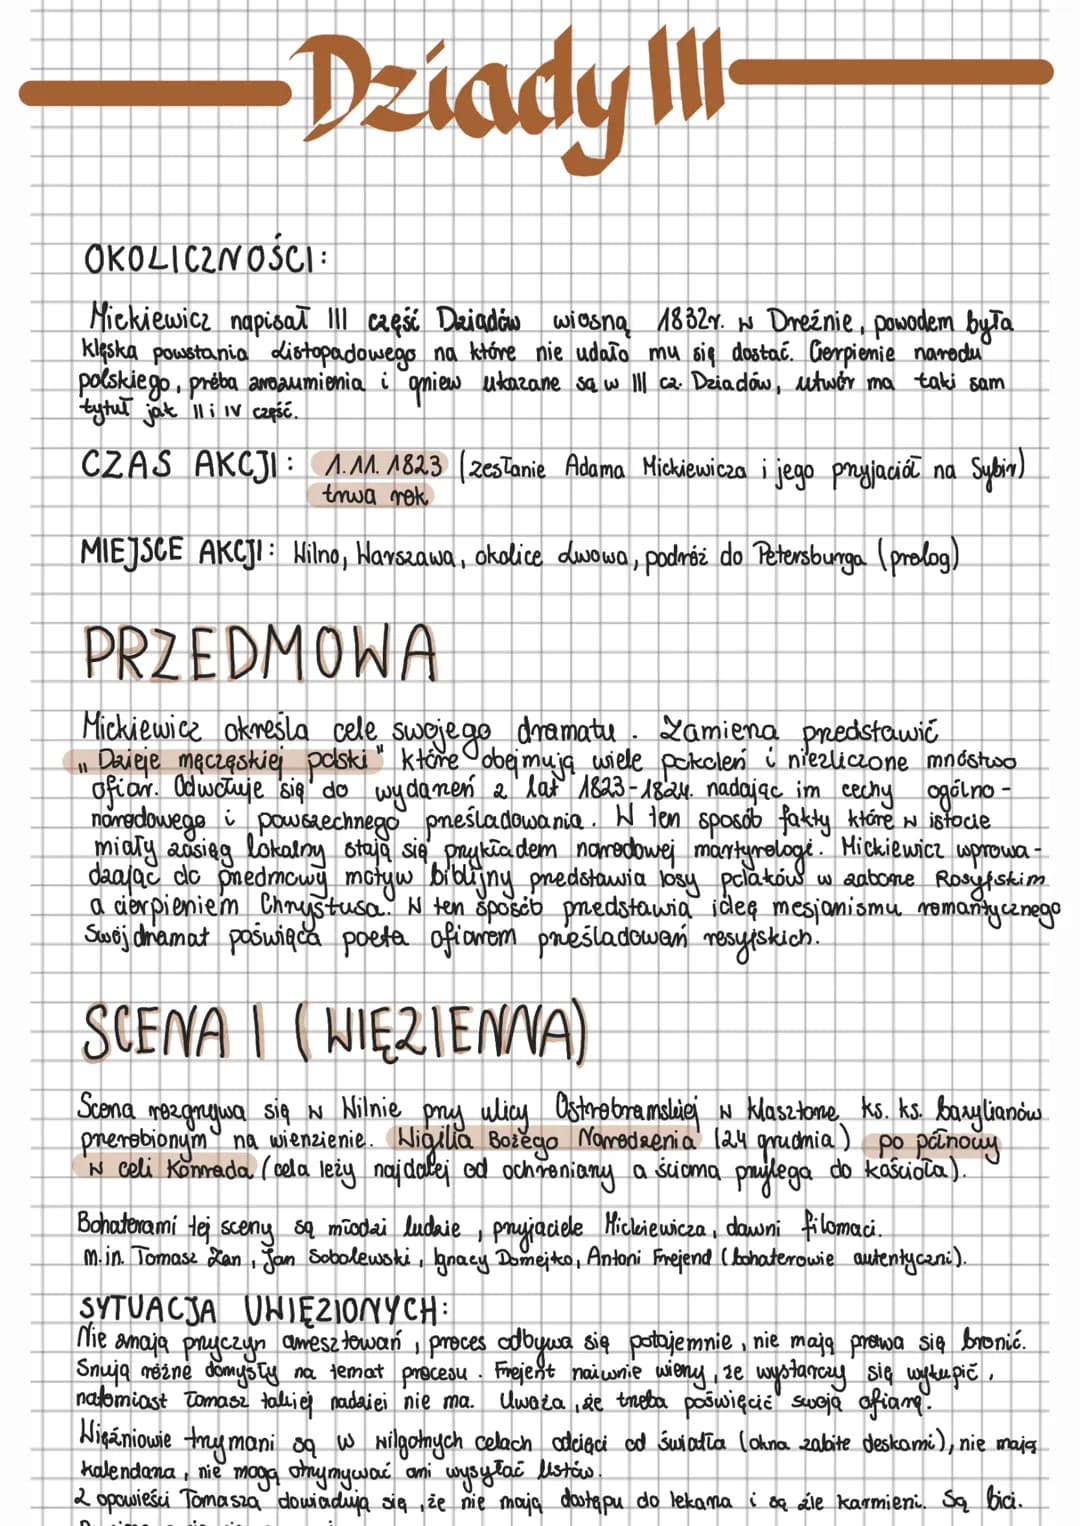 Dziady III
OKOLICZNOŚCI:
Mickiewicz napisał III część Dziadów wiosną 1832r. w Dreźnie, powodem była
klęska powstania listopadowego na które nie udało mu się dostać. Cierpienie narodu
polskiego, próba zrozumienia i gniew ukazane są w III cz. Dziadów, utwór ma taki sam
tytuł jak II i IV część.
CZAS AKCJI: 1.11.1823 (zesłanie Adama Mickiewicza i jego przyjaciół na Sybir)
trwa rok
MIEJSCE AKCJI: Wilno, Warszawa, okolice Lwowa, podróż do Petersburga (prolog)
PRZEDMOWA
Mickiewicz określa cele swojego dramatu. Zamierza przedstawić
„Dzieje męczęskiej polski" które obejmują wiele pokoleń i niezliczone mnóstwo
ofiar. Odwołuje się do wydarzeń z lat 1823-1824. nadając im cechy ogólno-
narodowego i powszechnego prześladowania. W ten sposób fakty które w istocie
miały zasięg lokalny stają się przykładem narodowej martyrologi. Mickiewicz wprowa-
dzając do przedmowy motyw biblijny przedstawia losy polaków w zaborze Rosyjskim
a cierpieniem Chrystusa. W ten sposób przedstawia ideę mesjanismu romantycznego
Swój dramat poświęca poeta ofiarom prześladowań rosyjskich.
SCENA I (WIĘZIENNA)
Scena rozgrywa się w Wilnie przy ulicy Ostrobramskiej w klasztorze ks. ks. bazylianów
przerobionym na wienzienie. Wigilia Bożego Narodzenia (24 grudnia) po północy
w celi Konrada (cela leży najdalej od ochroniarzy a ścianą przylega do kościoła).
Bohaterami tej sceny są młodzi ludzie, przyjaciele Mickiewicza, dawni filomaci.
m.in. Tomasz Zan, Jan Sobolewski, Ignacy Domejko, Antoni Frejend (bohaterowie autentyczni).
SYTUACJA UWIĘZIONYCH:
Nie znają przyczyn aresztowań, proces odbywa się potajemnie, nie mają prawa się bronić.
Snują różne domysły na temat procesu. Frejent naiwnie wierzy, że wystarczy się wykupić,
natomiast Tomasz takiej nadziei nie ma. Uważa, że trzeba poświęcić swoją ofiarę.
Więźniowie trzymani są w wilgotnych celach odcięci od światła (okna zabite deskami), nie mają
kalendarza, nie mogą otrzymywać ani wysyłać listów.
Z opowieści Tomasza dowiadują się, że nie mają dostępu do lekarza i są źle karmieni. Są bici.